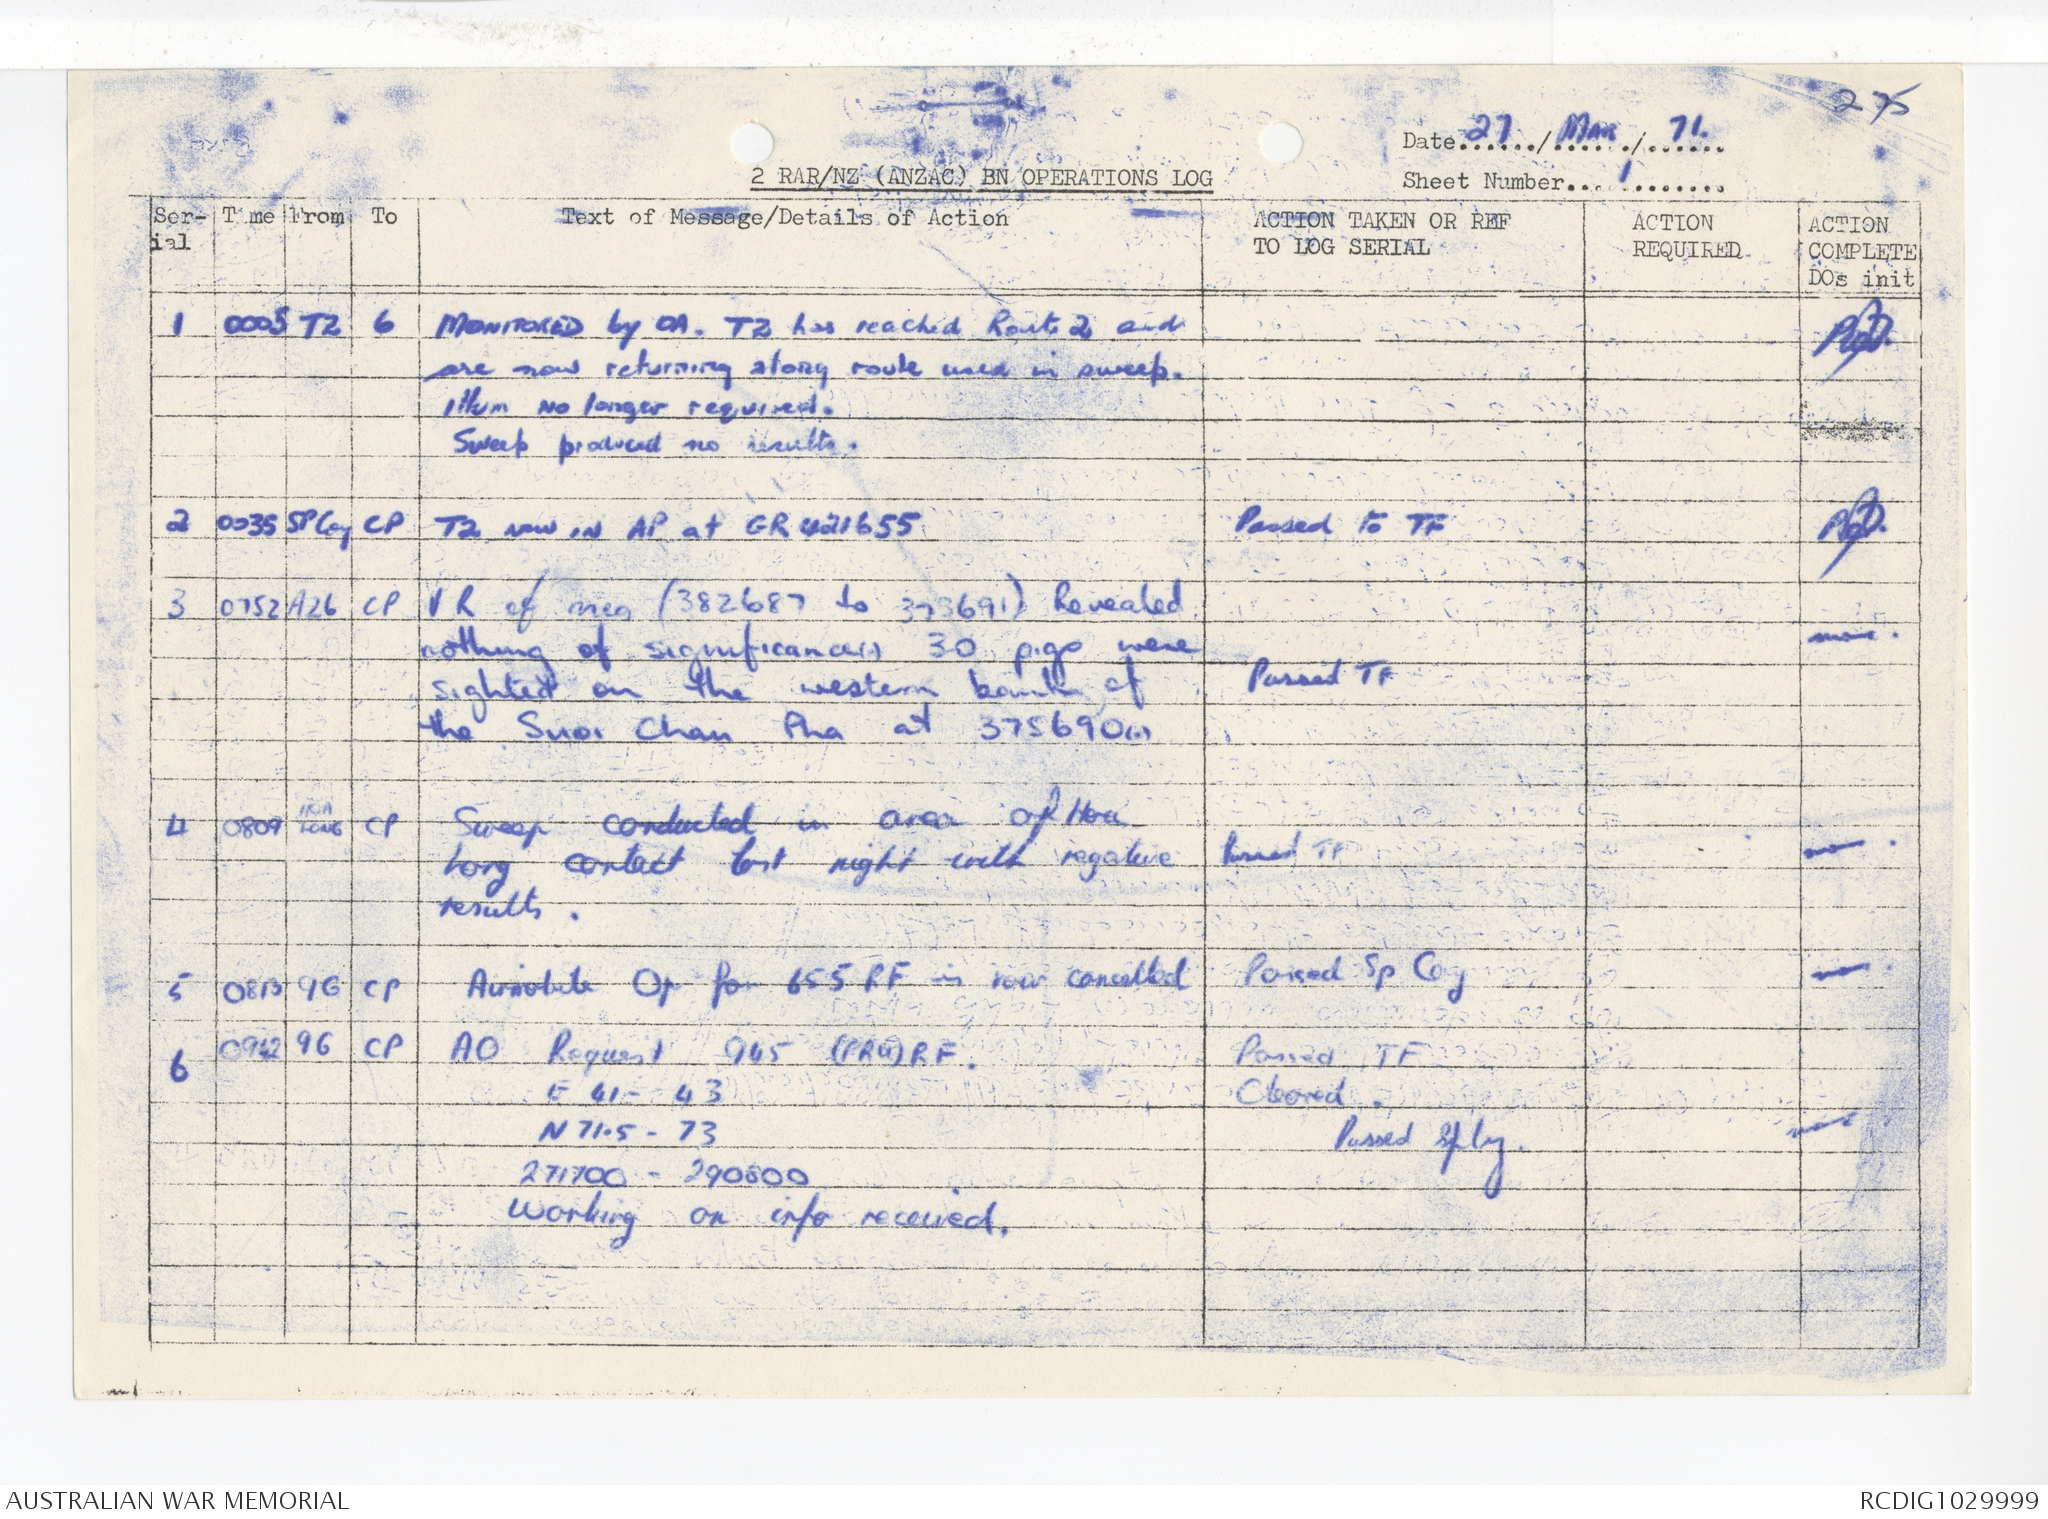 275
Date 27 / Mar / 71.
Sheet Number 1
2 RAR/NZ (ANZAC) BN OPERATIONS LOG
Ser- Time From To Text of Message/Details of Action ACTION TAKEN OR REF ACTION ACTION
ial TO LOG SERIAL REQUIRED COMPLETE
DOs init
1 0005 T2 6 MONITORED by OA. T2 has reached Route 2 and
are now returning along route used in sweep.
Illum no longer required.
Sweep produced no results.
2 0035 SP Coy CP T2 now in AP at GR 421655 Passed to TF
3 0752 A26 CP VR of area (382687 to 373691) Revealed
nothing of significance(.) 30 pigs were
sighted on the western bank of Passed TF
the Suoi Chau Pha at 375690(.)
4 0809 HOA LONG CP Sweep conducted in area of Hoa
Long contact last night with negative Passed TF
results.
5 0813 96 CP Airmobile Op for 655 RF is now cancelled Passed Sp Coy
6 0942 96 CP AO Request 945 (PRU) RF. Passed TF
E 41 - 43 Cleared.
N 71.5 - 73 Passed Sp Coy.
271700 - 290800
Working on info received.
AUSTRALIAN WAR MEMORIAL RCDIG1029999